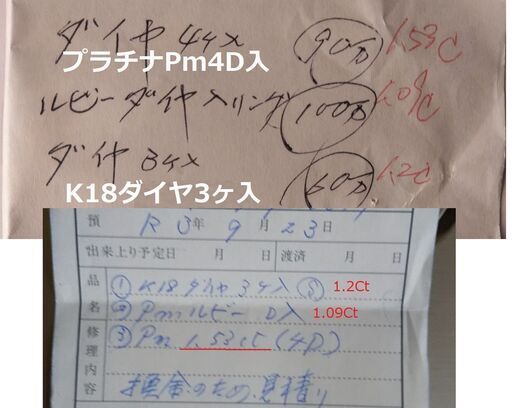 ダイヤ4ヶ入 90万 1.53c
プラチナPm4D入
ルビーダイヤ入リング 100万 1.09c
ダイヤ3ヶ入 60万 1.2c
K18ダイヤ3ヶ入
預 R3年9月23日
出来上り予定日 月 日 渡済 月 日
品名 修理内容
① K18ダイヤ3ヶ入 1.2Ct
② Pmルビー D入 1.09Ct
③ Pm 1.53ct (4D)
換金のため見積り